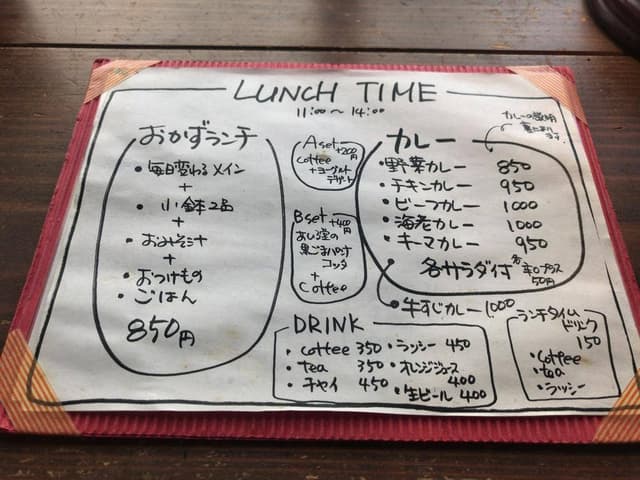 LUNCH TIME
11:00〜14:00
おかずランチ
・毎日変わるメイン
+
・小鉢2品
+
・おみそ汁
+
・おつけもの
・ごはん
850円
Aset
+200円
coffee
+ヨーグルト
デザート
Bset
+400円
あしる堂の
黒ごまパンナ
コッタ
+
Coffee
カレー
カレーの説明
裏にあります。
・野菜カレー 850
・チキンカレー 950
・ビーフカレー 1000
・海老カレー 1000
・キーマカレー 950
各サラダ付
辛口プラス
50円
・牛すじカレー 1000
DRINK
・coffee 350
・tea 350
・チャイ 450
・ラッシー 450
・オレンジジュース
400
・生ビール 400
ランチタイム
ドリンク
150
・Coffee
・tea
・ラッシー